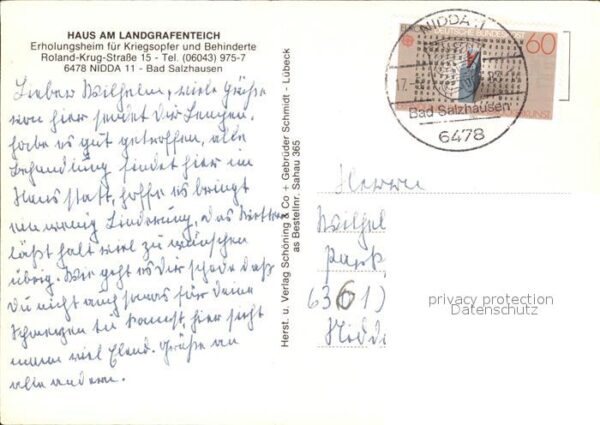 HAUS AM LANDGRAFENTEICH
Erholungsheim für Kriegsopfer und Behinderte
Roland-Krug-Straße 15 - Tel. (06043) 975-7
6478 NIDDA 11 - Bad Salzhausen
Lieber Wilhelm, viele Grüße
von hier sendet der
habe es gut getroffen, alle
Behandlung findet hier im
Haus statt, hoffe es bringt
ein wenig Linderung, das Wetter
läßt halt viel zu wünschen
übrig. Wie geht es Dir schade daß
Du nicht auch für Deine
kannst, hier sieht
man viel Elend. Grüße an
alle andern.
Herst. u. Verlag Schöning & Co + Gebrüder Schmidt - Lübeck
as Bestellnr. Sahau 365
NIDDA
DEUTSCHE BUNDESPOST 60
17.
Bad Salzhausen
6478
Herrn
Wilhel
Park
6361)
Nidd
privacy protection
Datenschutz